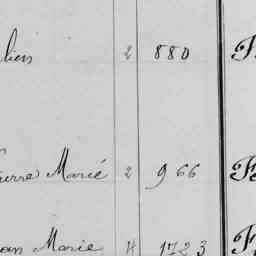 lien 2 880
Pierre Marié 2 966
Jean Marie 4 1723